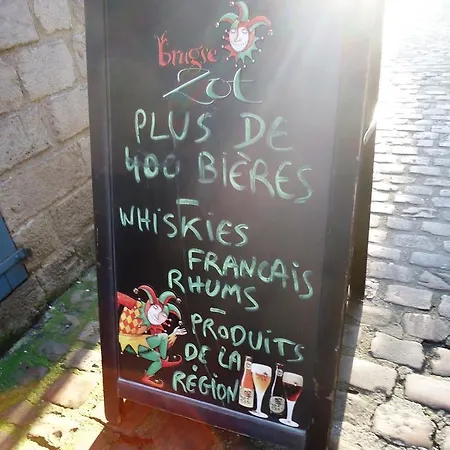 Brugse
Zot
PLUS DE
400 BIÈRES
-
WHISKIES
FRANCAIS
RHUMS
-
PRODUITS
DE LA
RÉGION